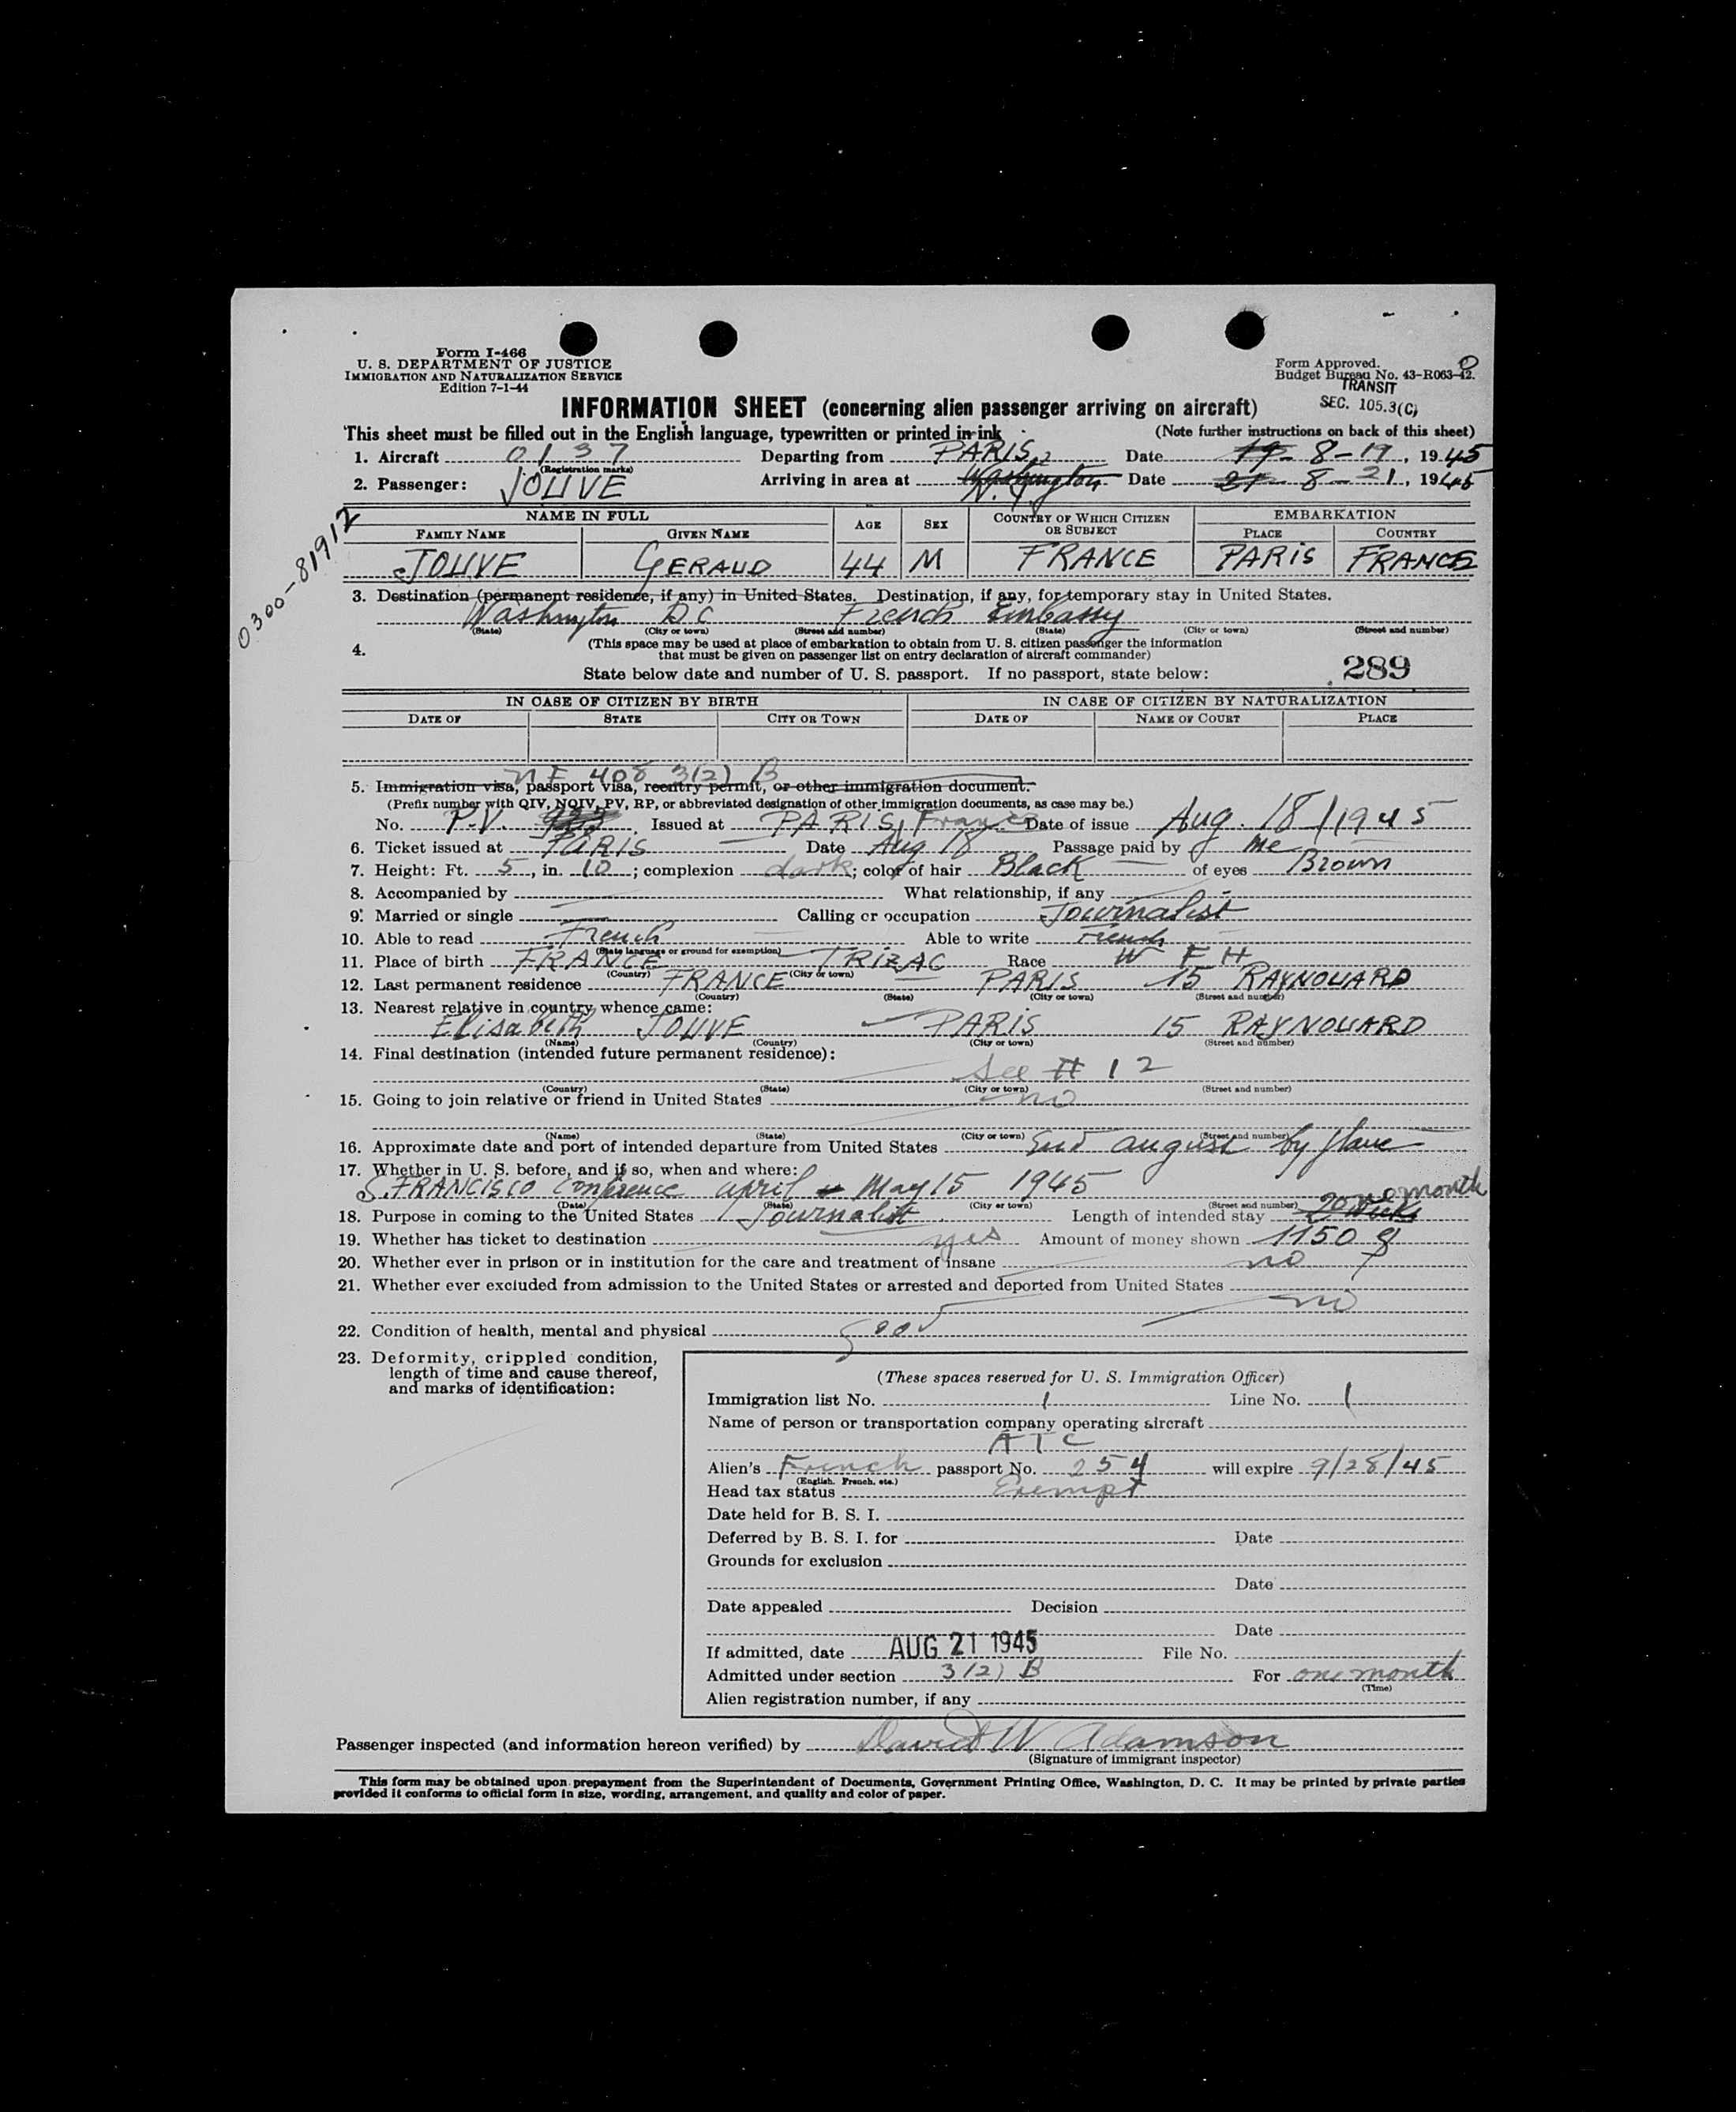 Form I-466
U. S. DEPARTMENT OF JUSTICE
IMMIGRATION AND NATURALIZATION SERVICE
Edition 7-1-44
Form Approved.
Budget Bureau No. 43-R063-42.
TRANSIT
SEC. 105.3(C)
INFORMATION SHEET (concerning alien passenger arriving on aircraft)
This sheet must be filled out in the English language, typewritten or printed in ink (Note further instructions on back of this sheet)
1. Aircraft 0137 Departing from PARIS Date 19 8-19, 1945
(Registration marks)
2. Passenger: JOUVE Arriving in area at Washington N.Y. Date 21 8-21, 1945
0300-81912
NAME IN FULL AGE SEX COUNTRY OF WHICH CITIZEN OR SUBJECT EMBARKATION
FAMILY NAME GIVEN NAME PLACE COUNTRY
JOUVE GERAUD 44 M FRANCE PARIS FRANCE
3. Destination (permanent residence, if any) in United States. Destination, if any, for temporary stay in United States.
Washington DC French Embassy
(State) (City or town) (Street and number) (State) (City or town) (Street and number)
4. (This space may be used at place of embarkation to obtain from U. S. citizen passenger the information
that must be given on passenger list on entry declaration of aircraft commander)
State below date and number of U. S. passport. If no passport, state below: 289
IN CASE OF CITIZEN BY BIRTH IN CASE OF CITIZEN BY NATURALIZATION
DATE OF STATE CITY OR TOWN DATE OF NAME OF COURT PLACE
408 3(2) B
5. Immigration visa, passport visa, reentry permit, or other immigration document.
(Prefix number with QIV, NQIV, PV, RP, or abbreviated designation of other immigration documents, as case may be.)
No. P.V. Issued at PARIS, France Date of issue Aug. 18/1945
6. Ticket issued at PARIS Date Aug 18 Passage paid by Me
7. Height: Ft. 5, in. 10; complexion dark; color of hair Black of eyes Brown
8. Accompanied by What relationship, if any
9. Married or single Calling or occupation Journalist
10. Able to read French Able to write French
(State language or ground for exemption)
11. Place of birth FRANCE TRIZAC Race W F H
(Country) (City or town)
12. Last permanent residence FRANCE PARIS 15 RAYNOUARD
(Country) (State) (City or town) (Street and number)
13. Nearest relative in country whence came:
Elisabeth JOUVE PARIS 15 RAYNOUARD
(Name) (Country) (City or town) (Street and number)
14. Final destination (intended future permanent residence):
See # 12
(Country) (State) (City or town) (Street and number)
15. Going to join relative or friend in United States no
(Name) (State) (City or town) (Street and number)
16. Approximate date and port of intended departure from United States End august by plane
17. Whether in U. S. before, and if so, when and where:
S. FRANCISCO Conference april May 15 1945
(Date) (State) (City or town) (Street and number)
18. Purpose in coming to the United States Journalist Length of intended stay one month
19. Whether has ticket to destination yes Amount of money shown 1150 $
20. Whether ever in prison or in institution for the care and treatment of insane no
21. Whether ever excluded from admission to the United States or arrested and deported from United States
no
22. Condition of health, mental and physical good
23. Deformity, crippled condition,
length of time and cause thereof,
and marks of identification:
(These spaces reserved for U. S. Immigration Officer)
Immigration list No. 1 Line No. 1
Name of person or transportation company operating aircraft
ATC
Alien's French passport No. 254 will expire 9/28/45
(English, French, etc.)
Head tax status Exempt
Date held for B. S. I.
Deferred by B. S. I. for Date
Grounds for exclusion
Date
Date appealed Decision
Date
If admitted, date AUG 21 1945 File No.
Admitted under section 3(2) B For one month
(Time)
Alien registration number, if any
Passenger inspected (and information hereon verified) by David W Adamson
(Signature of immigrant inspector)
This form may be obtained upon prepayment from the Superintendent of Documents, Government Printing Office, Washington, D. C. It may be printed by private parties
provided it conforms to official form in size, wording, arrangement, and quality and color of paper.